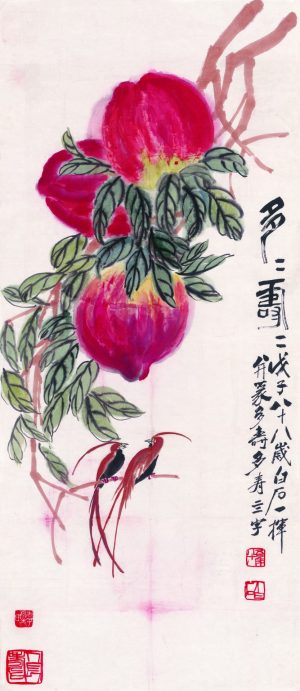 多二壽
二戊子八十八歲白石一揮
并篆多寿多寿三字